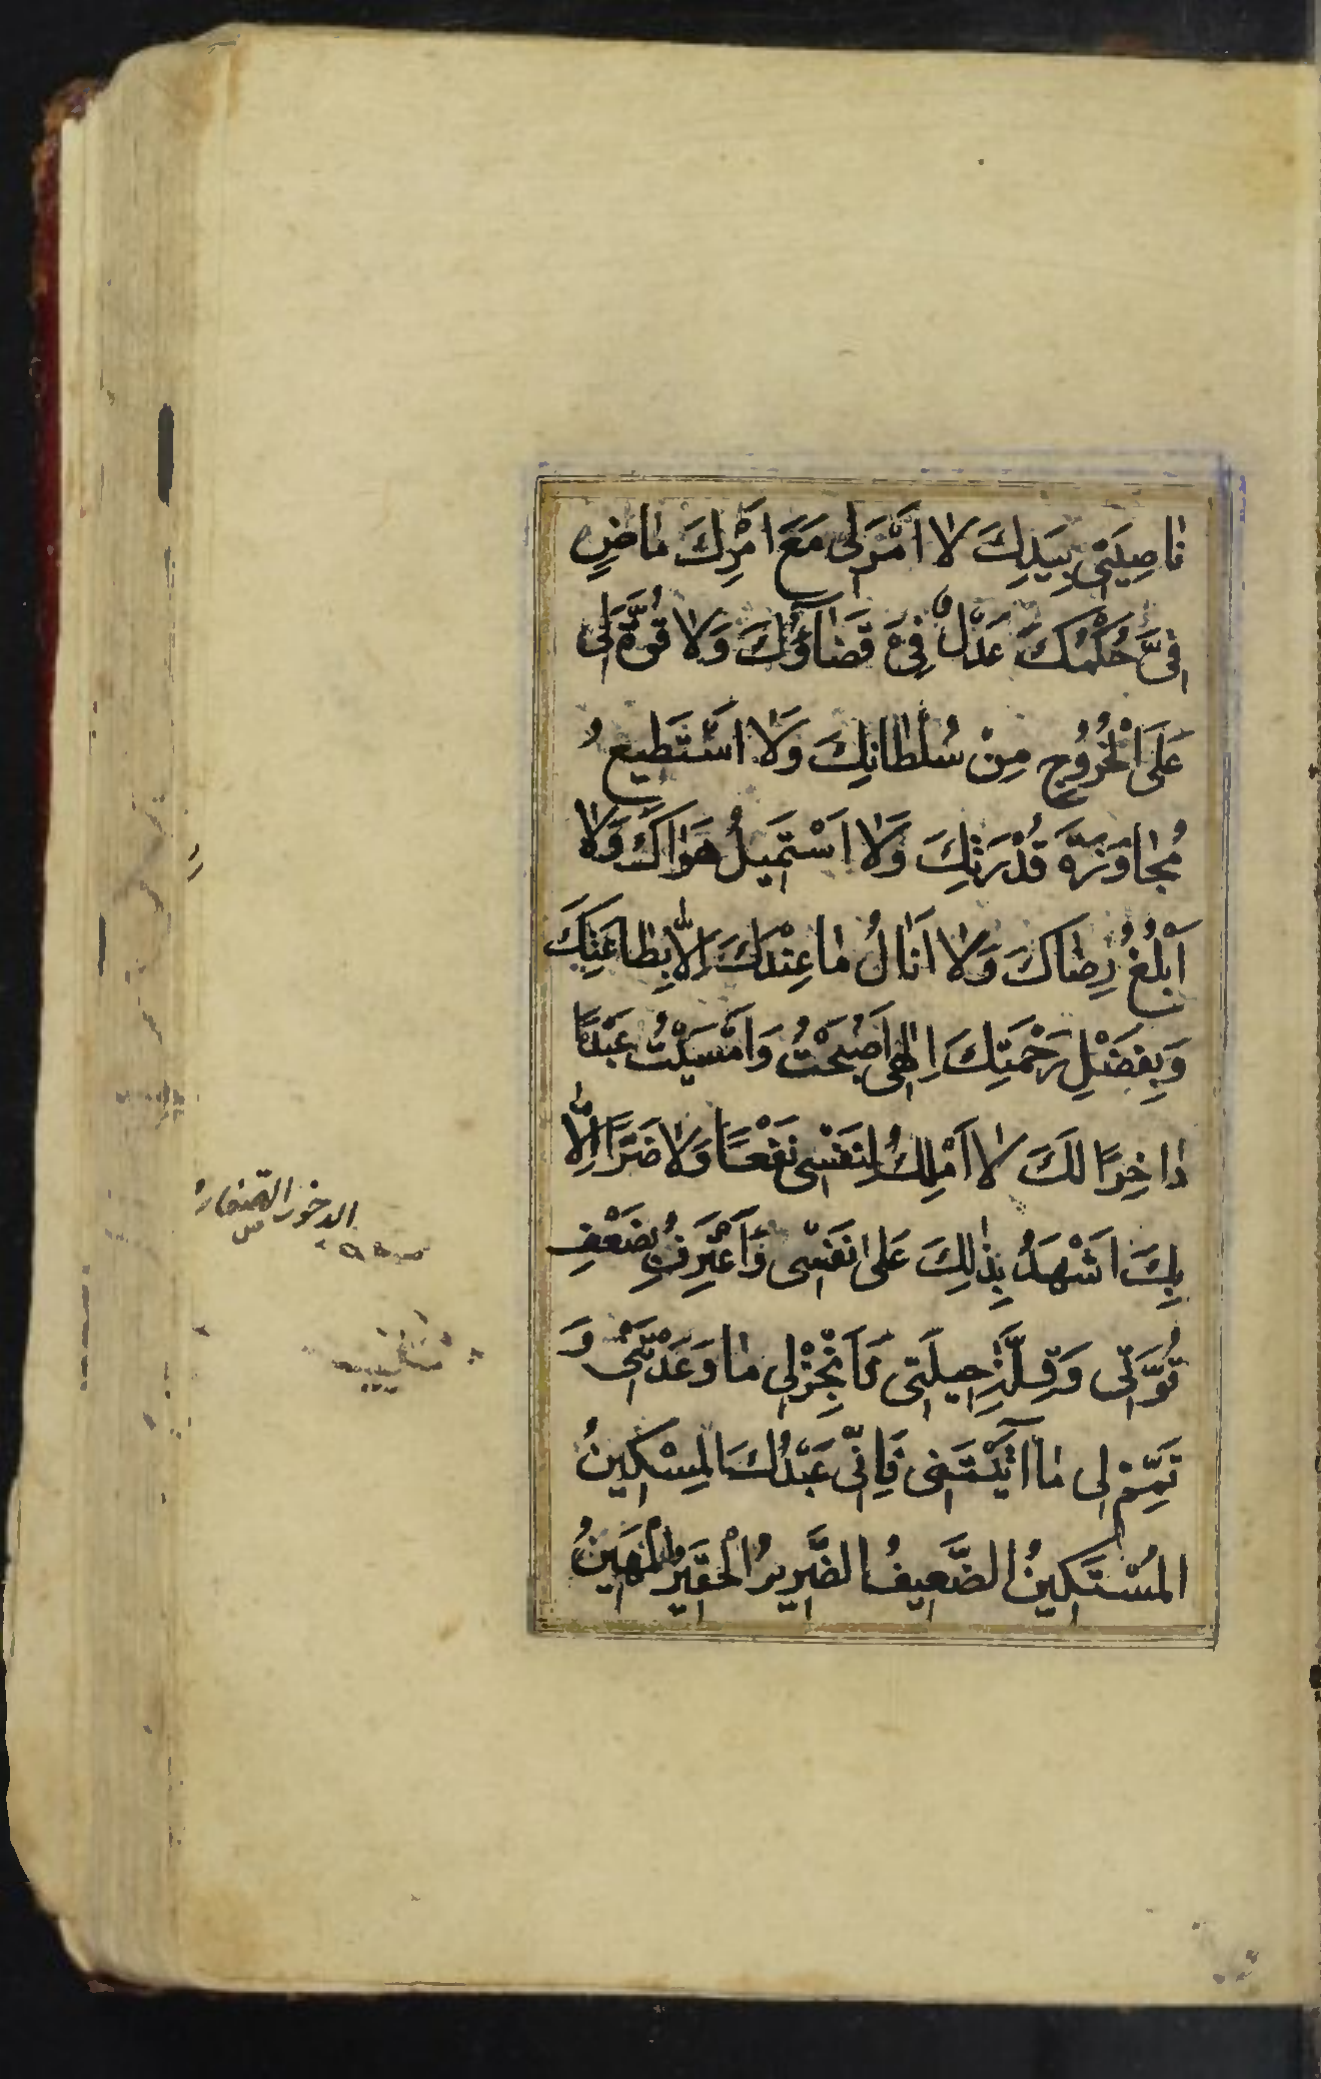 نَاصِيَتِي بِيَدِكَ لَا اَمْرَ لِی مَعَ اَمْرِكَ مَاضٍ
فِیَّ حُكْمُكَ عَدْلٌ فِیَّ قَضَاۤؤُكَ وَلَا قُوَّةَ لِی
عَلَى الْخُرُوجِ مِنْ سُلْطَانِكَ وَلَا اَسْتَطِيعُ
مُجَاوَزَةَ قُدْرَتِكَ وَلَا اَسْتَمِيلُ هَوَاكَ وَلَا
اَبْلُغُ رِضَاكَ وَلَا اَنَالُ مَا عِنْدَكَ اِلَّا بِطَاعَتِكَ
وَبِفَضْلِ رَحْمَتِكَ اِلٰهِی اَصْبَحْتُ وَاَمْسَيْتُ عَبْدًا
دَاخِرًا لَكَ لَا اَمْلِكُ لِنَفْسِی نَفْعًا وَلَا ضَرًّا اِلَّا
بِكَ اَشْهَدُ بِذٰلِكَ عَلَى نَفْسِی وَاَعْتَرِفُ بِضَعْفِ
قُوَّتِی وَقِلَّةِ حِيلَتِی فَاَنْجِزْ لِی مَا وَعَدْتَنِی وَ
تَمِّمْ لِی مَا اٰتَيْتَنِی فَاِنِّی عَبْدُكَ الْمِسْكِينُ
الْمُسْتَكِينُ الضَّعِيفُ الضَّرِيرُ الْحَقِيرُ الْمَهِينُ
الدخور الصغار